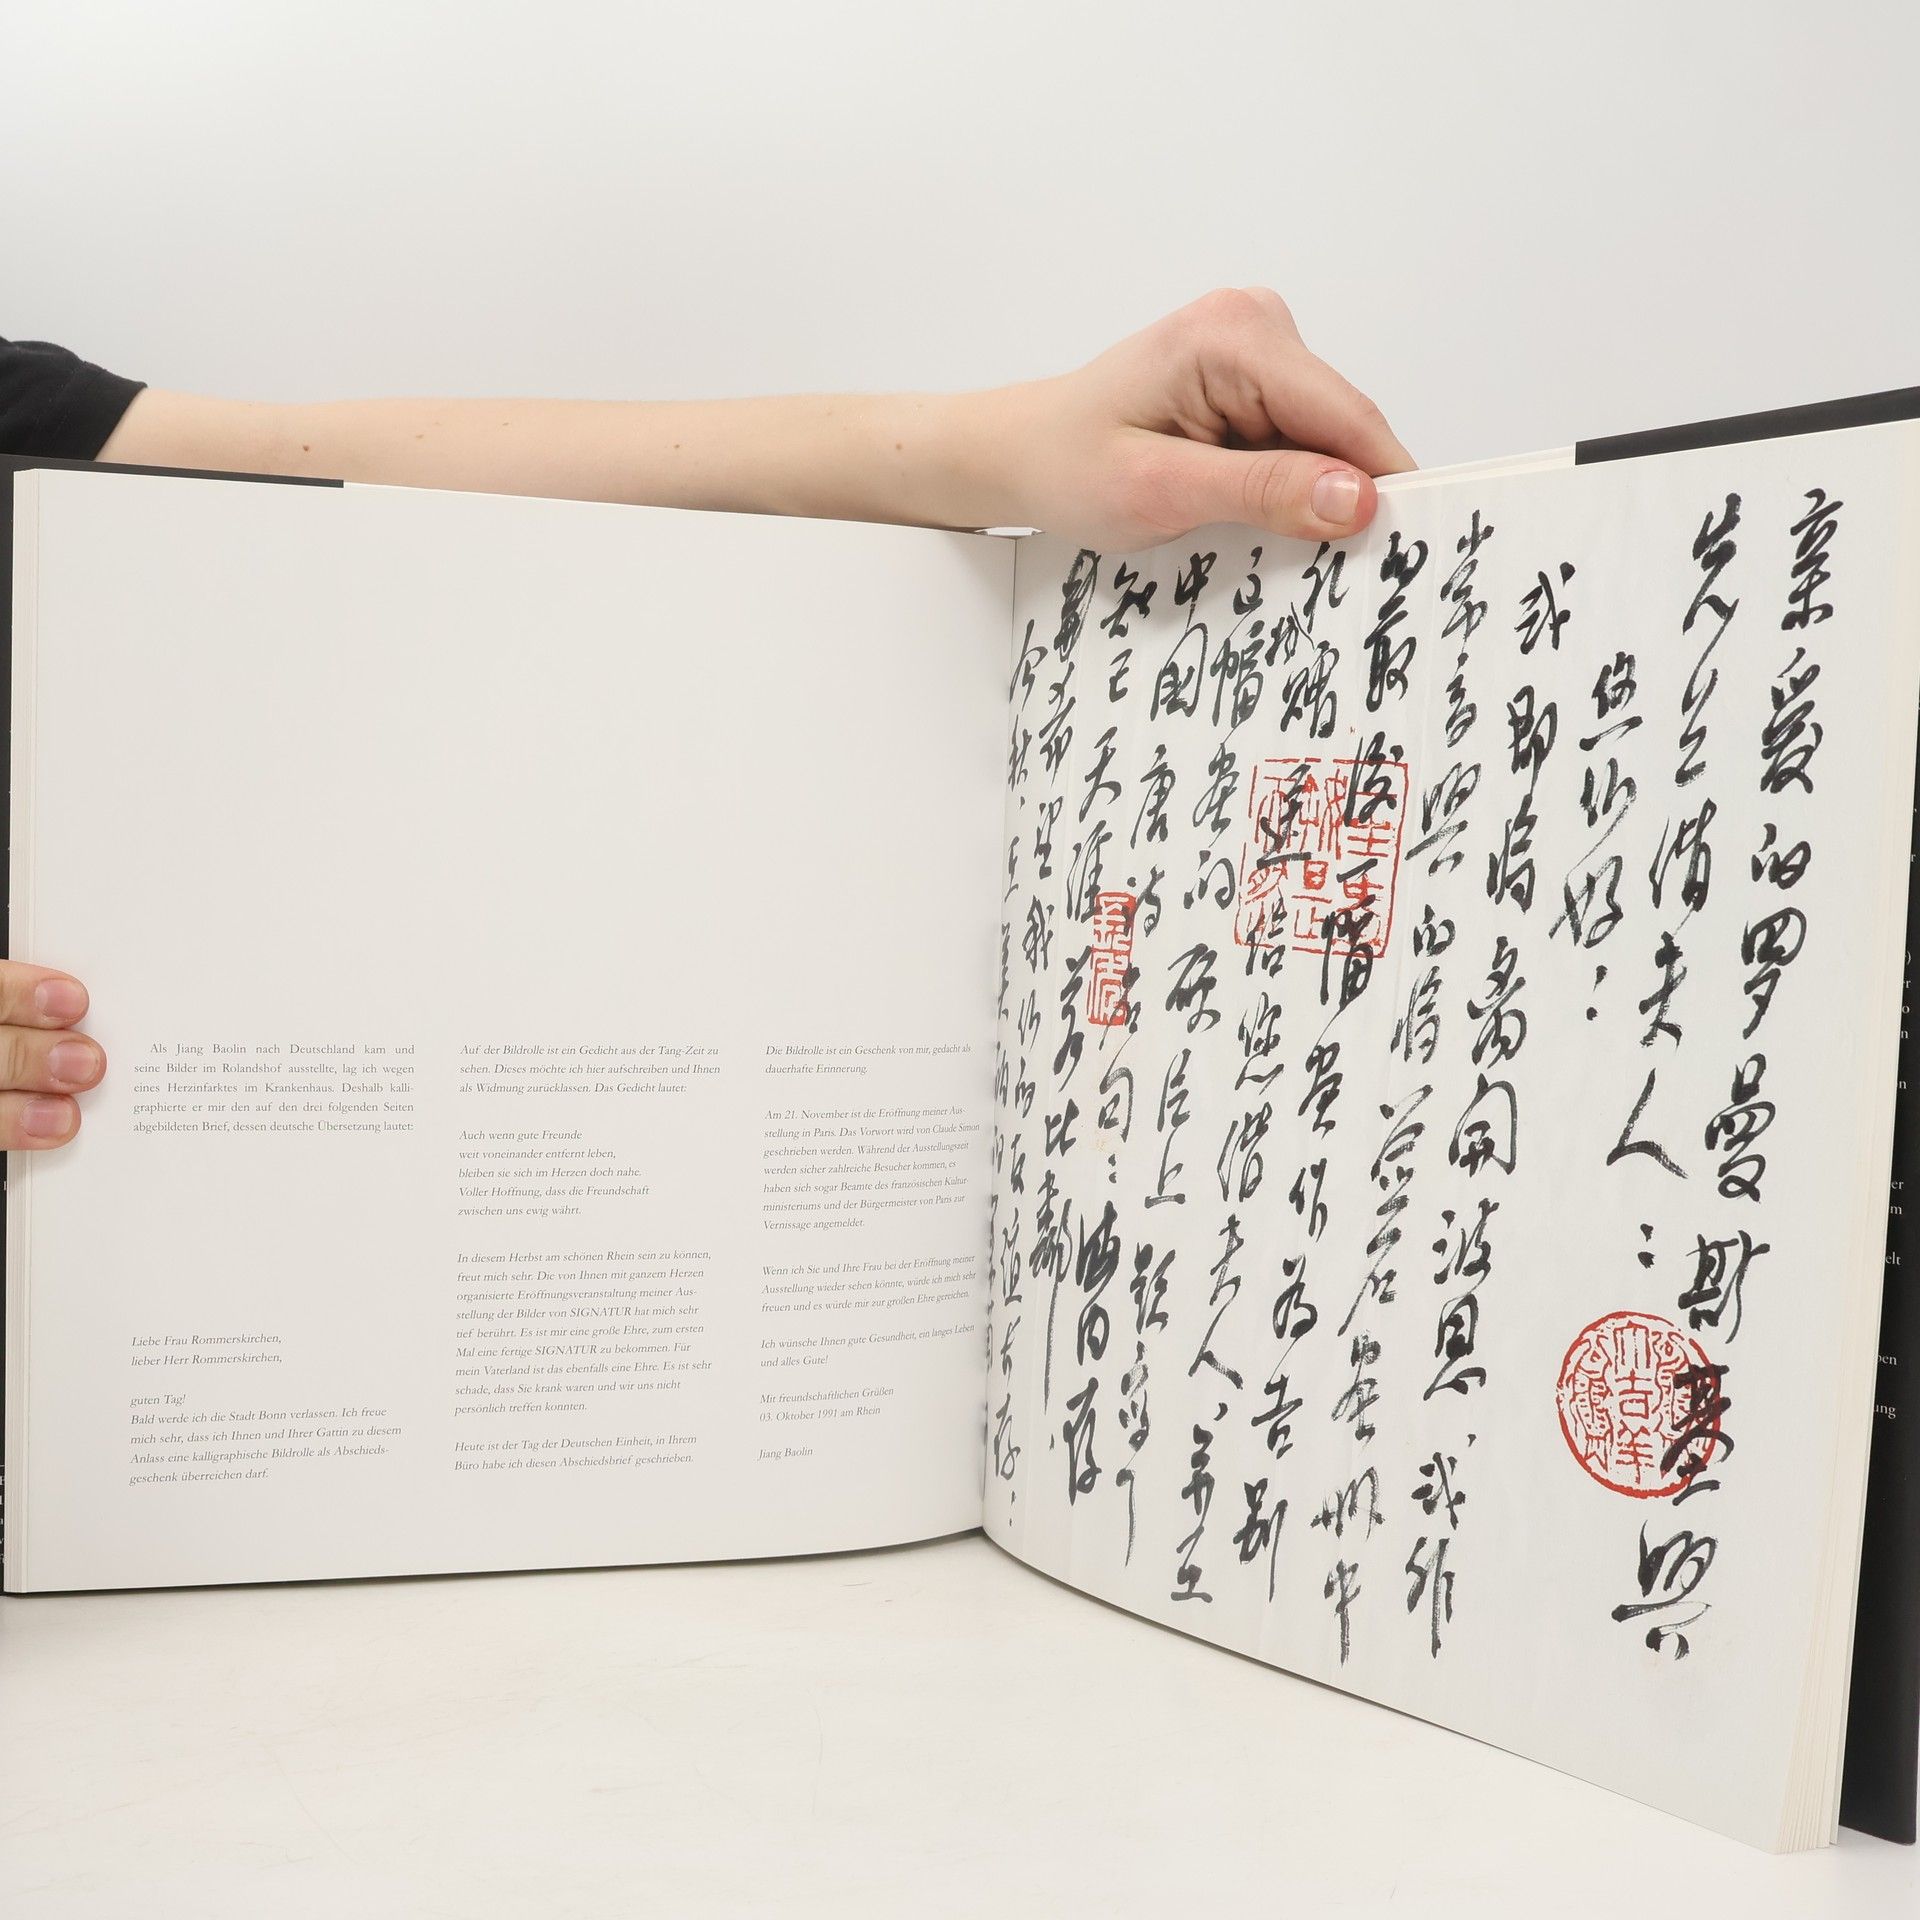 Als Jiang Baolin nach Deutschland kam und
seine Bilder im Rolandshof ausstellte, lag ich wegen
eines Herzinfarktes im Krankenhaus. Deshalb kalli-
graphierte er mir den auf den drei folgenden Seiten
abgebildeten Brief, dessen deutsche Übersetzung lautet:
Liebe Frau Rommerskirchen,
lieber Herr Rommerskirchen,
guten Tag!
Bald werde ich die Stadt Bonn verlassen. Ich freue
mich sehr, dass ich Ihnen und Ihrer Gattin zu diesem
Anlass eine kalligraphische Bildrolle als Abschieds-
geschenk überreichen darf.
Auf der Bildrolle ist ein Gedicht aus der Tang-Zeit zu
sehen. Dieses möchte ich hier aufschreiben und Ihnen
als Widmung zurücklassen. Das Gedicht lautet:
Auch wenn gute Freunde
weit voneinander entfernt leben,
bleiben sie sich im Herzen doch nahe.
Voller Hoffnung, dass die Freundschaft
zwischen uns ewig währt.
In diesem Herbst am schönen Rhein sein zu können,
freut mich sehr. Die von Ihnen mit ganzem Herzen
organisierte Eröffnungsveranstaltung meiner Aus-
stellung der Bilder von SIGNATUR hat mich sehr
tief berührt. Es ist mir eine große Ehre, zum ersten
Mal eine fertige SIGNATUR zu bekommen. Für
mein Vaterland ist das ebenfalls eine Ehre. Es ist sehr
schade, dass Sie krank waren und wir uns nicht
persönlich treffen konnten.
Heute ist der Tag der Deutschen Einheit, in Ihrem
Büro habe ich diesen Abschiedsbrief geschrieben.
Die Bildrolle ist ein Geschenk von mir, gedacht als
dauerhafte Erinnerung.
Am 21. November ist die Eröffnung meiner Aus-
stellung in Paris. Das Vorwort wird von Claude Simon
geschrieben werden. Während der Ausstellungszeit
werden sicher zahlreiche Besucher kommen, es
haben sich sogar Beamte des französischen Kultur-
ministeriums und der Bürgermeister von Paris zur
Vernissage angemeldet.
Wenn ich Sie und Ihre Frau bei der Eröffnung meiner
Ausstellung wieder sehen könnte, würde ich mich sehr
freuen und es würde mir zur großen Ehre gereichen.
Ich wünsche Ihnen gute Gesundheit, ein langes Leben
und alles Gute!
Mit freundschaftlichen Grüßen
03. Oktober 1991 am Rhein
Jiang Baolin
亲爱的罗曼斯基興
先生偕夫人：
您们好：
我即将离开波恩 我
常高興的将签名画册中
的最後一幅画作为告别
礼物赠送给您偕夫人、并在
这幅画的硬片上题寫了
中国唐诗名句：海内存
知己天涯若比鄰
希望我们的友谊长存
今秋、
大吉羊